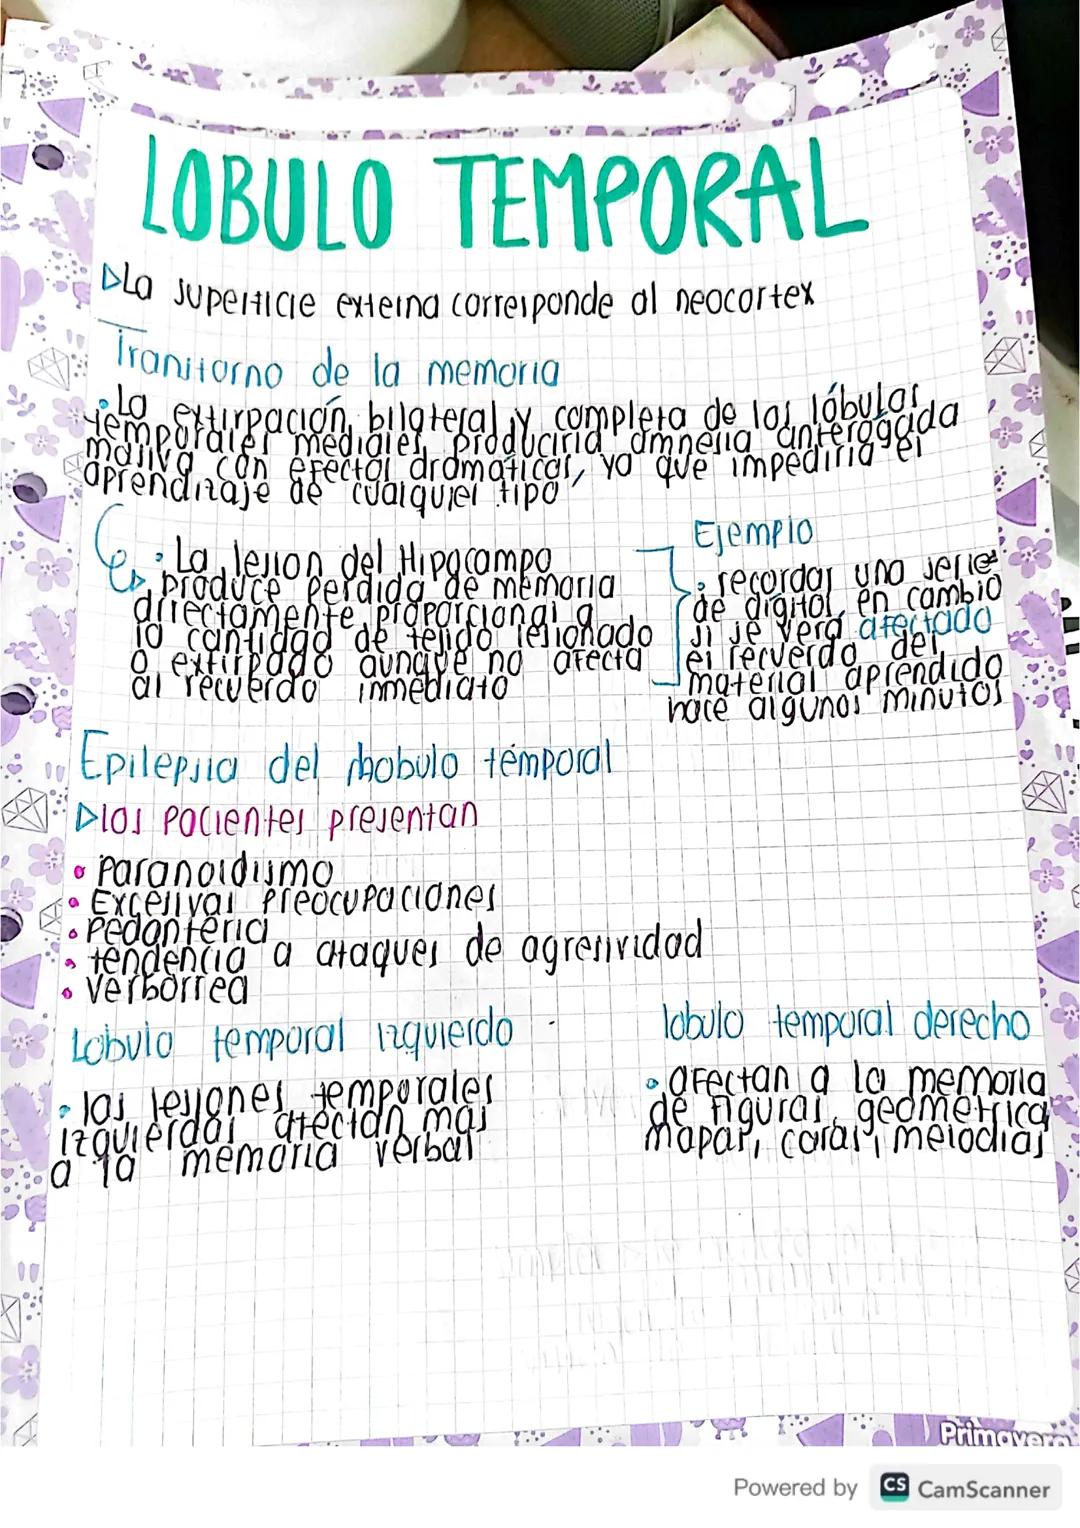 LOBULO TEMPORAL
La superficie externa corresponde al neocortex
Transtorno de la memoria
La extirpación bilateral y completa de los lóbulos
temporales mediales, produciria amnesia anterogada
masiva con efectos dramáticos, ya que impediria el
aprendizaje de cualquier tipo
La lesion del Hipocampo
produce perdida de memoria
directamente proporcional a
la cantidad de tejido lesionado
o extirpado aunque no afecta
al recuerdo inmediato
Ejemplo
recordar una serie
de digitos, en cambio
si se vera afectado
el recuerdo del
material aprendido
hace algunos minutos
Epilepsia del lobulo temporal
los pacientes presentan
Paranoidismo
Excesivas preocupaciones
Pedanteria
tendencia a ataques de agresividad
Verborrea
Lobulo temporal izquierdo
las lesiones temporales
izquierdas afectan mas
a la memoria verbal
lobulo temporal derecho
afectan a la memoria
de figuras geometrica
mapas, caras, melodias
Primavera
Powered by CS CamScanner